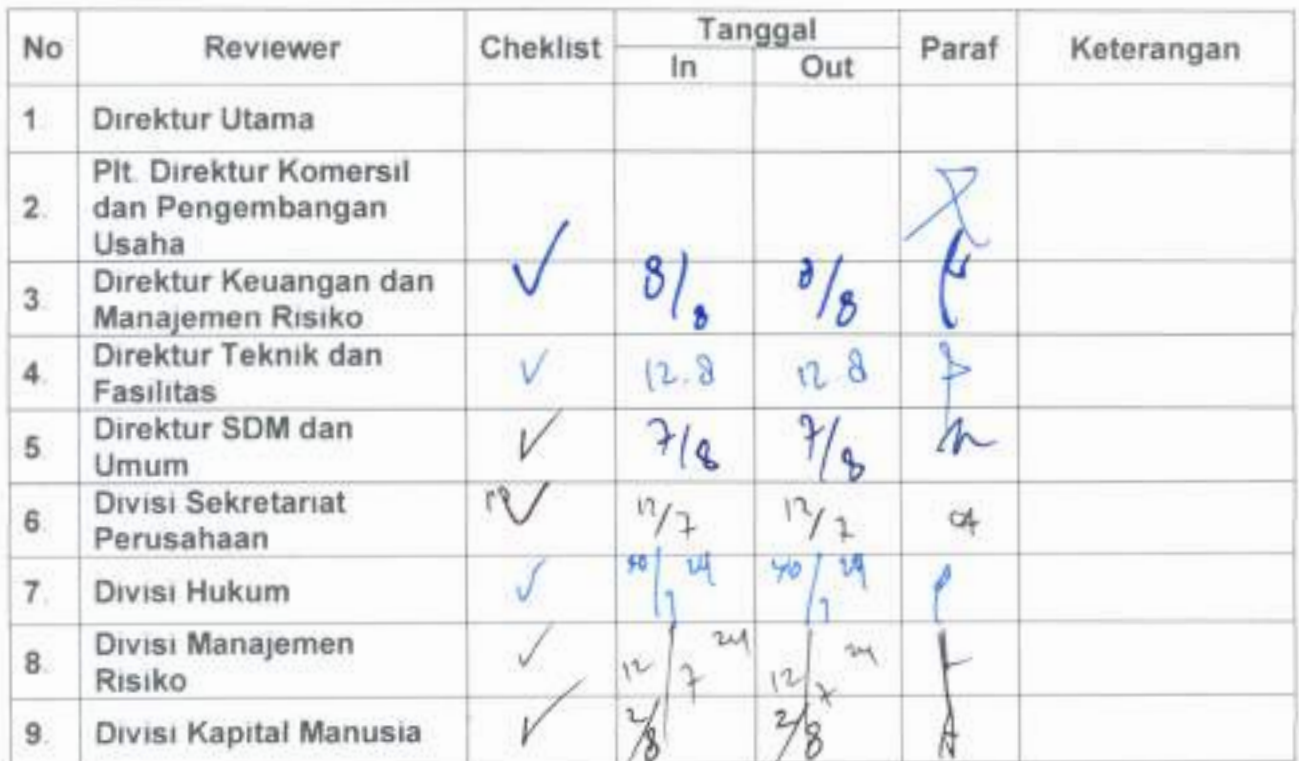 No Reviewer Cheklist Tanggal Paraf Keterangan
In Out
1. Direktur Utama
2. Plt. Direktur Komersil
dan Pengembangan
Usaha
3. Direktur Keuangan dan
Manajemen Risiko
8/8 8/8
4. Direktur Teknik dan
Fasilitas
12.8 12.8
5. Direktur SDM dan
Umum
7/8 7/8
6. Divisi Sekretariat
Perusahaan
12/7 12/7
7. Divisi Hukum
8. Divisi Manajemen
Risiko
12/7 24 12/7 24
9. Divisi Kapital Manusia
2/8 2/8